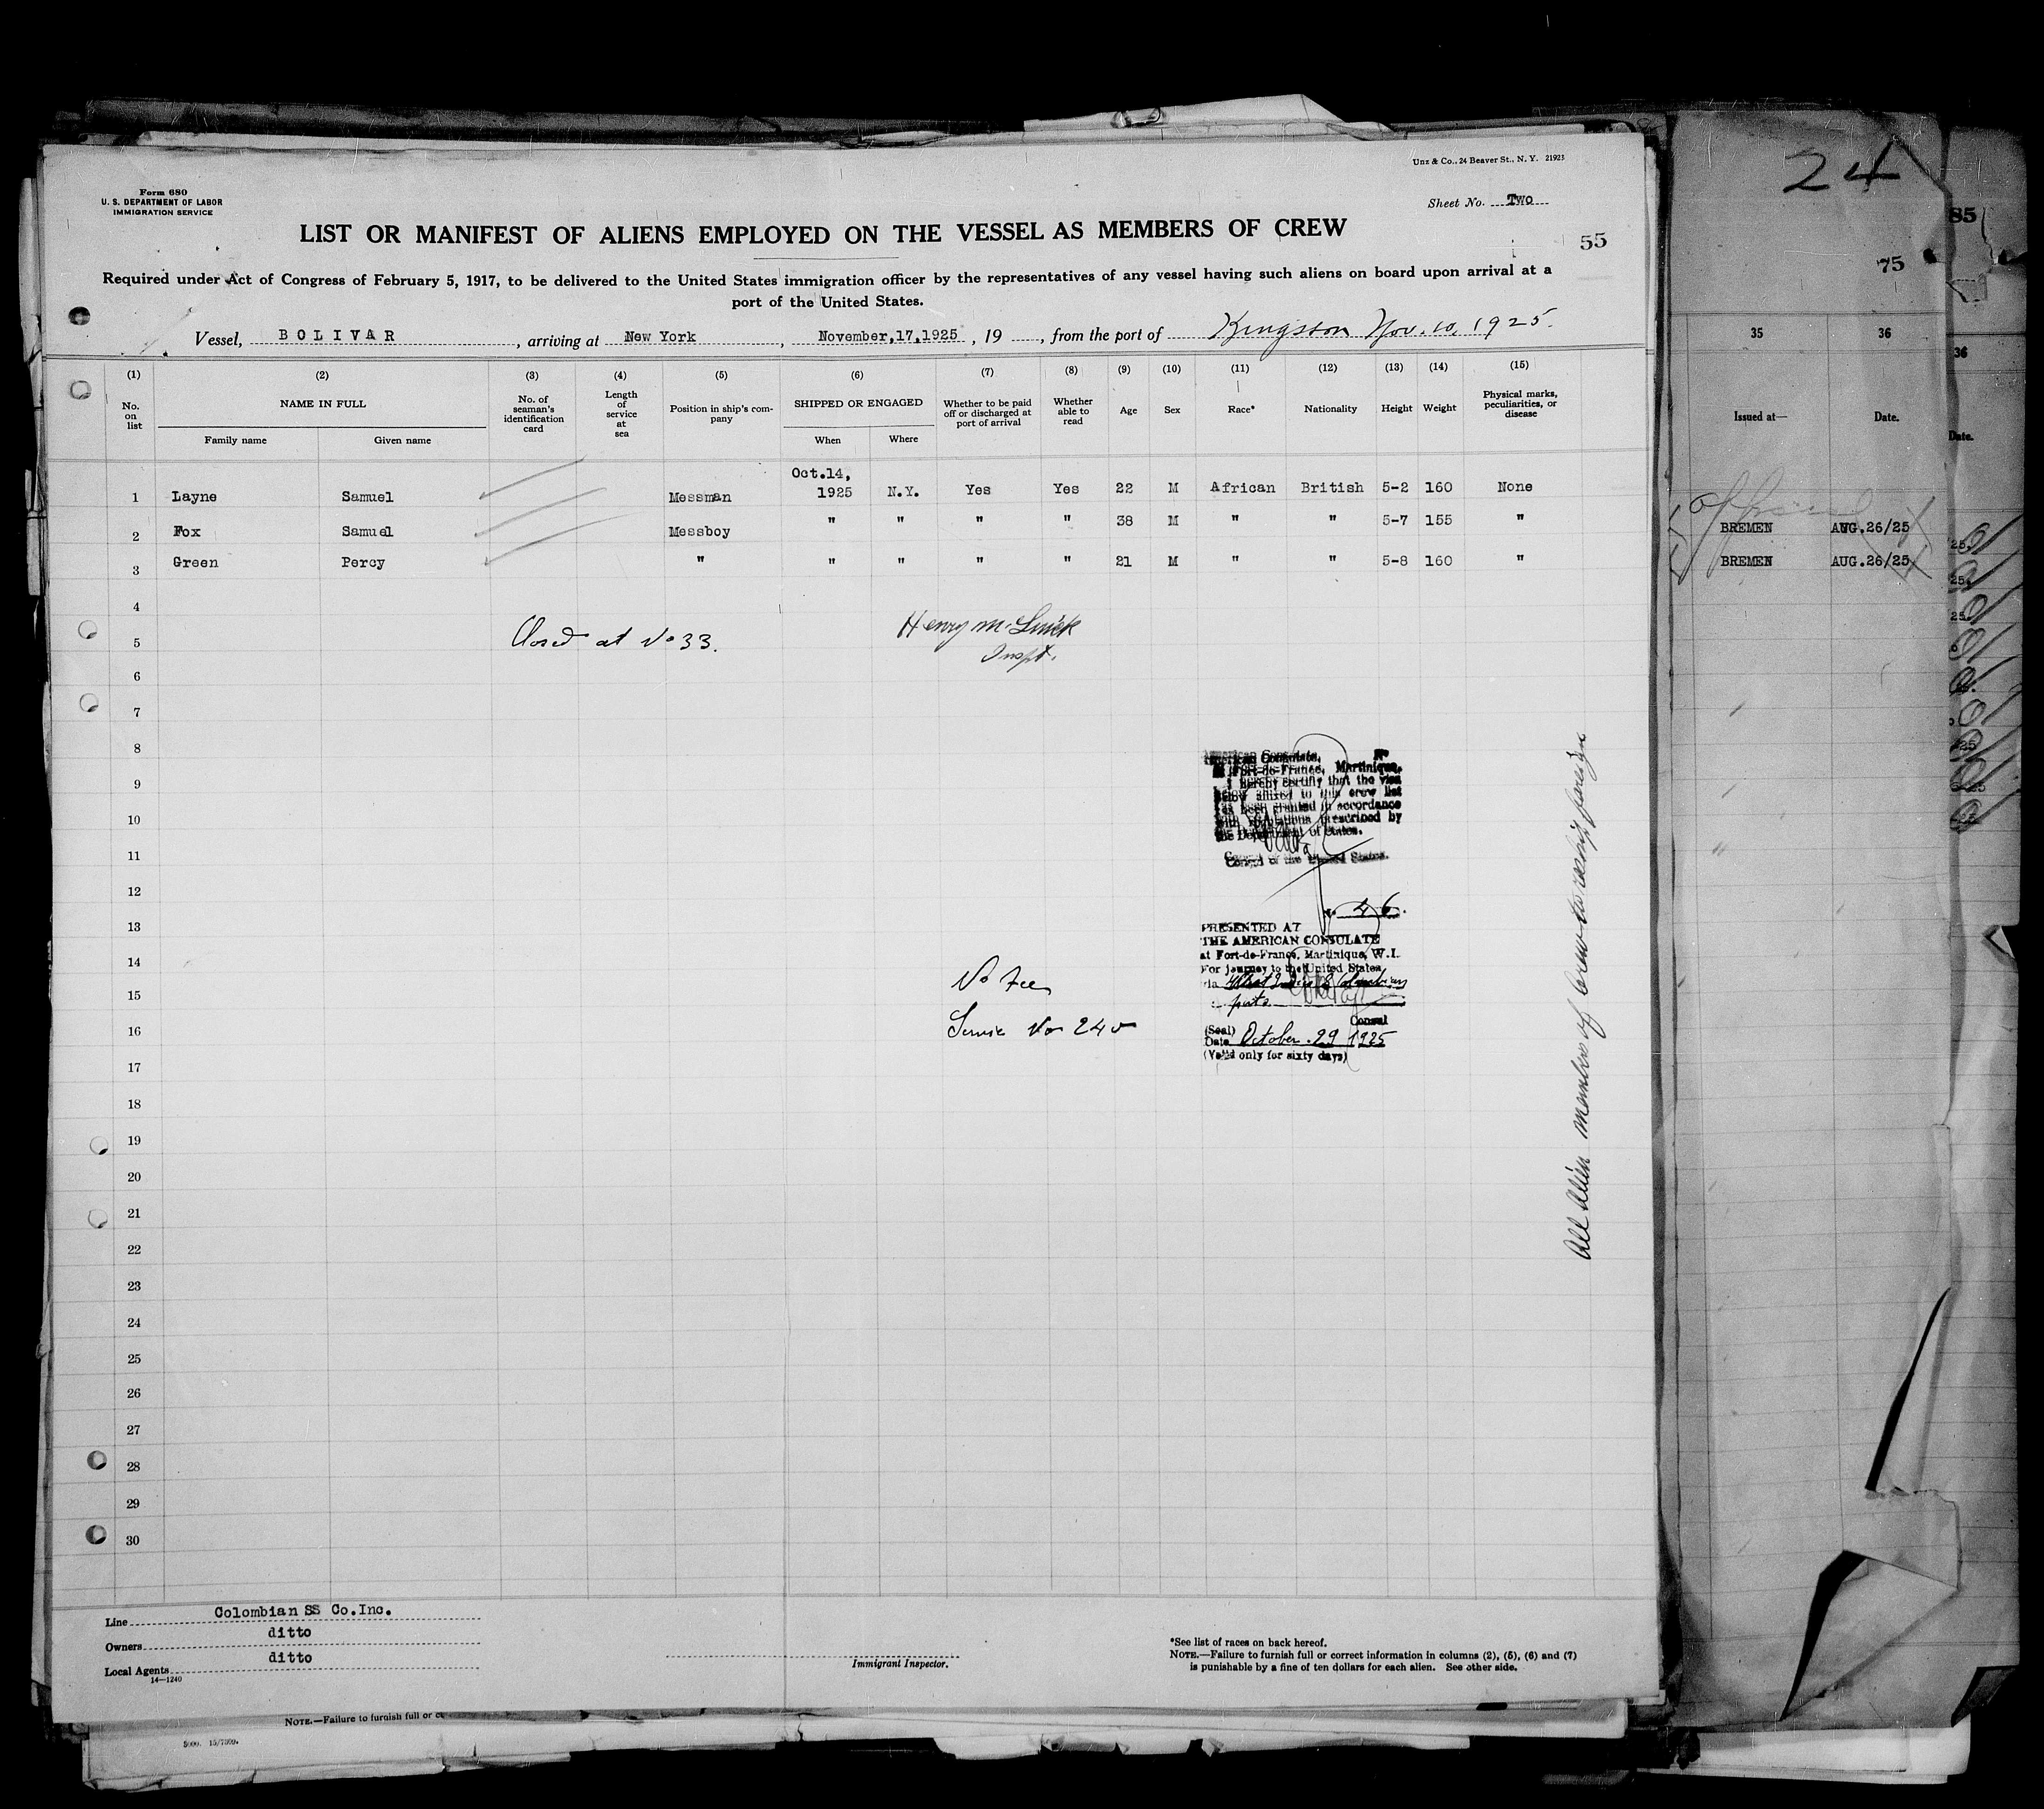 Unz & Co., 24 Beaver St., N. Y. 21923
Form 680
U. S. DEPARTMENT OF LABOR
IMMIGRATION SERVICE
Sheet No. Two
LIST OR MANIFEST OF ALIENS EMPLOYED ON THE VESSEL AS MEMBERS OF CREW
55
Required under Act of Congress of February 5, 1917, to be delivered to the United States immigration officer by the representatives of any vessel having such aliens on board upon arrival at a
port of the United States.
Vessel, BOLIVAR, arriving at New York, November,17,1925, 19, from the port of Kingston Nov. 10, 1925.
(1) (2) (3) (4) (5) (6) (7) (8) (9) (10) (11) (12) (13) (14) (15)
No. on list NAME IN FULL No. of seaman's identification card Length of service at sea Position in ship's company SHIPPED OR ENGAGED Whether to be paid off or discharged at port of arrival Whether able to read Age Sex Race* Nationality Height Weight Physical marks, peculiarities, or disease
Family name Given name When Where
Oct.14,
1 Layne Samuel Messman 1925 N.Y. Yes Yes 22 M African British 5-2 160 None
2 Fox Samuel Messboy " " " " 38 M " " 5-7 155 "
3 Green Percy " " " " " 21 M " " 5-8 160 "
4
5 Closed at No 33. Henry M.
Inspt.
6
7
8
9
10
11
12
13
14
15
16
17
18
19
20
21
22
23
24
25
26
27
28
29
30
American Consulate,
at Fort-de-France, Martinique.
I hereby certify that the visa
below affixed to this crew list
has been granted in accordance
with regulations prescribed by
the Department of State.
Consul of the United States.
No. 46.
PRESENTED AT
THE AMERICAN CONSULATE
at Fort-de-France, Martinique, W.I.
For journey to the United States,
via West Indies & Colombian
ports.
Consul
(Seal)
Date October 29 1925
(Valid only for sixty days)
No Fee
Service No 240
All Alien members of Crew to reship foreign
Line Colombian SS Co.Inc.
Owners ditto
Local Agents ditto
14—1240
Immigrant Inspector.
*See list of races on back hereof.
NOTE.—Failure to furnish full or correct information in columns (2), (5), (6) and (7)
is punishable by a fine of ten dollars for each alien. See other side.
NOTE.—Failure to furnish full or
5000. 15/7309.
24
75
35 36
Issued at— Date.
BREMEN AUG.26/25
BREMEN AUG.26/25
85
36
Date.